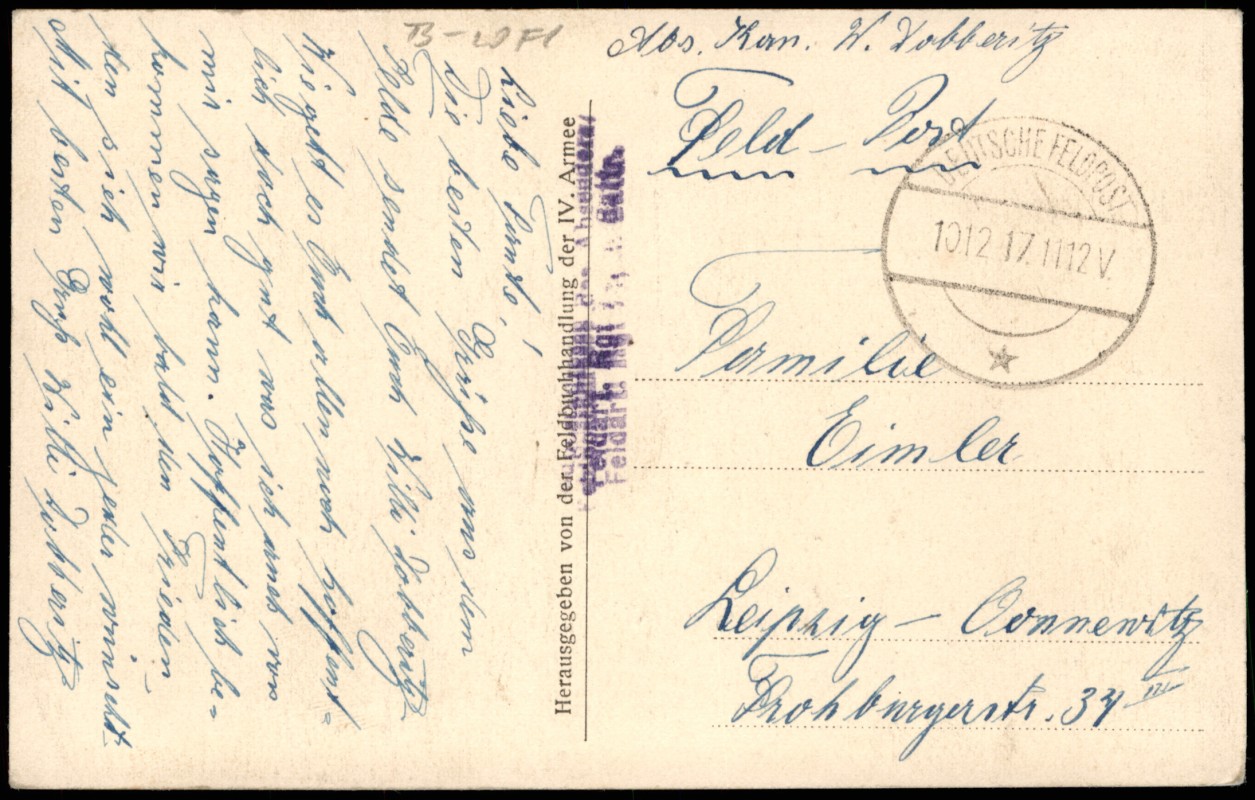 B-WF1
Abs. Kan. W. Dobberitz
Feld-Post
DEUTSCHE FELDPOST
10 12 17. 11 12 V.
Familie
Eimler
Leipzig-Connewitz
Frohburgerstr. 34 III
Herausgegeben von der Feldbuchhandlung der IV. Armee
Feldart. Rgt
Liebe Familie!
Die besten Grüße aus dem
Felde sendet Euch Willi Dobberitz
Wie geht es Euch allen noch hoffent=
lich noch gut was ich auch von
mir sagen kann. Hoffentlich be=
kommen wir bald den Frieden
den sich wohl ein jeder wünscht
Mit besten Gruß Willi Dobberitz